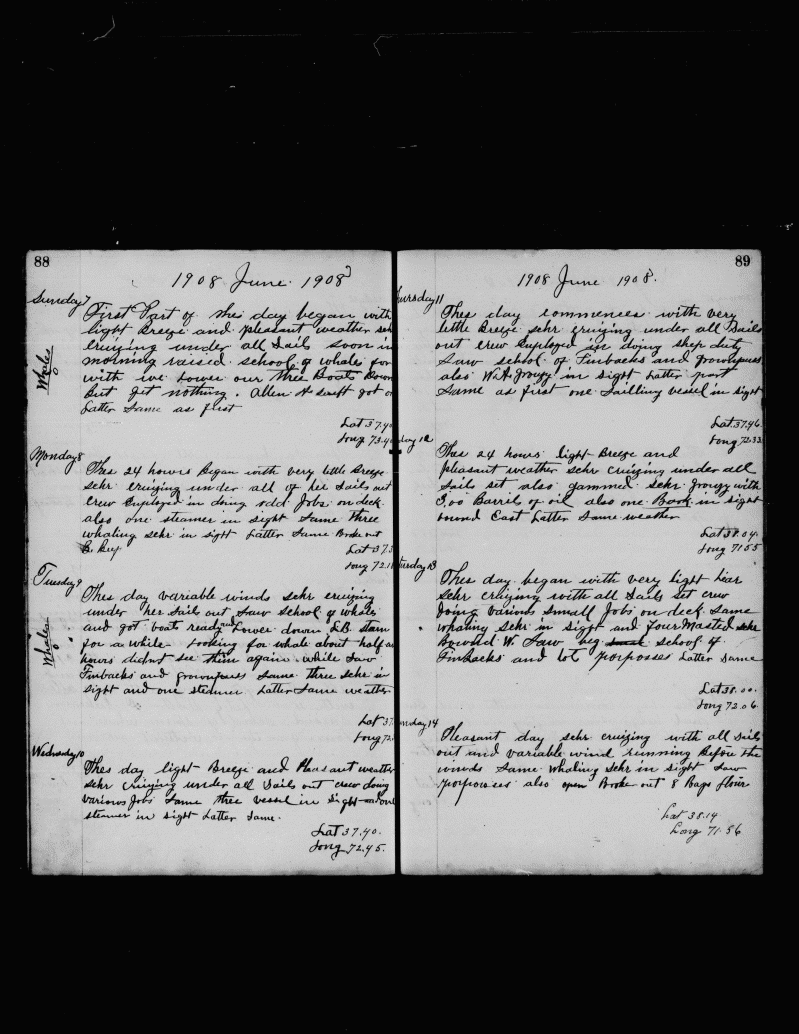 88
1908 June 1908
Sunday 7
First Part of this day began with
light Breeze and pleasant weather sch
Cruizing under all Sails soon in
morning raised school of whales for
Whales
with we Lower our three Boats Down
But get nothing. Allen A swift got o
Latter Same as first
Lat 37.4
Long 73.4
Monday 8
Thes 24 hours Began with very little Breeze
Sehr cruizing under all of her Sails out
crew Employed in doing odd Jobs on deck
also one steamer in sight Same three
whaling sehr in sight Latter Same Broke out
B. Beef
Lat 37.3
Long 72.1
Tuesday 9
Thes day variable winds sehr cruizing
under her Sails out Saw School of whale
and got boats ready and Lower down L.B. Starn
for a while Looking for whale about half a
Whales
hours didnt see them again while Saw
Finbacks and grownpuses Same three Sehr in
sight and one steamer Latter Same weather
Lat 37
Long 72
Wednesday 10
Thes day light Breeze and Pleasant weather
sehr cruizing under all Sails out crew doing
various Jobs Same three vessel in Sight and one
steamer in sight Latter Same.
Lat 37.40.
Long 72.45.
89
1908 June 1908.
ursday 11
Thes day commences with very
little Breeze sehr cruizing under all Sails
out crew Employed in doing ship duty
Saw school of Finbacks and Grownpuses
also W.A. Grozy in sight Latter part
Same as first one Sailling vessel in sight
Lat. 37.46.
Long 72.33
day 12
Thes 24 hours light Breeze and
pleasant weather sehr cruizing under all
Sails set also gammed Sehr. Grozy with
3,00 Barril of oil also one Bark in sight
bound East Latter Same weather
Lat 38.04.
Long 71.55
turday 13
Thes day began with very light air
sehr cruizing with all Sails Set crew
Doing Various Small Jobs on deck Same
whaling Sehr in Sight and Four Masted Sehr
Bound W. Saw beg school of
Finbacks and lot porposses Latter Same
Lat 38.00.
Long 72.06
unday 14
Pleasant day sehr cruizing with all Sails
out and variable wind running Before the
winds Same Whaling Sehr in Sight Saw
porposses also open Broke out 8 Bags flour
Lat 38.14
Long 71.56